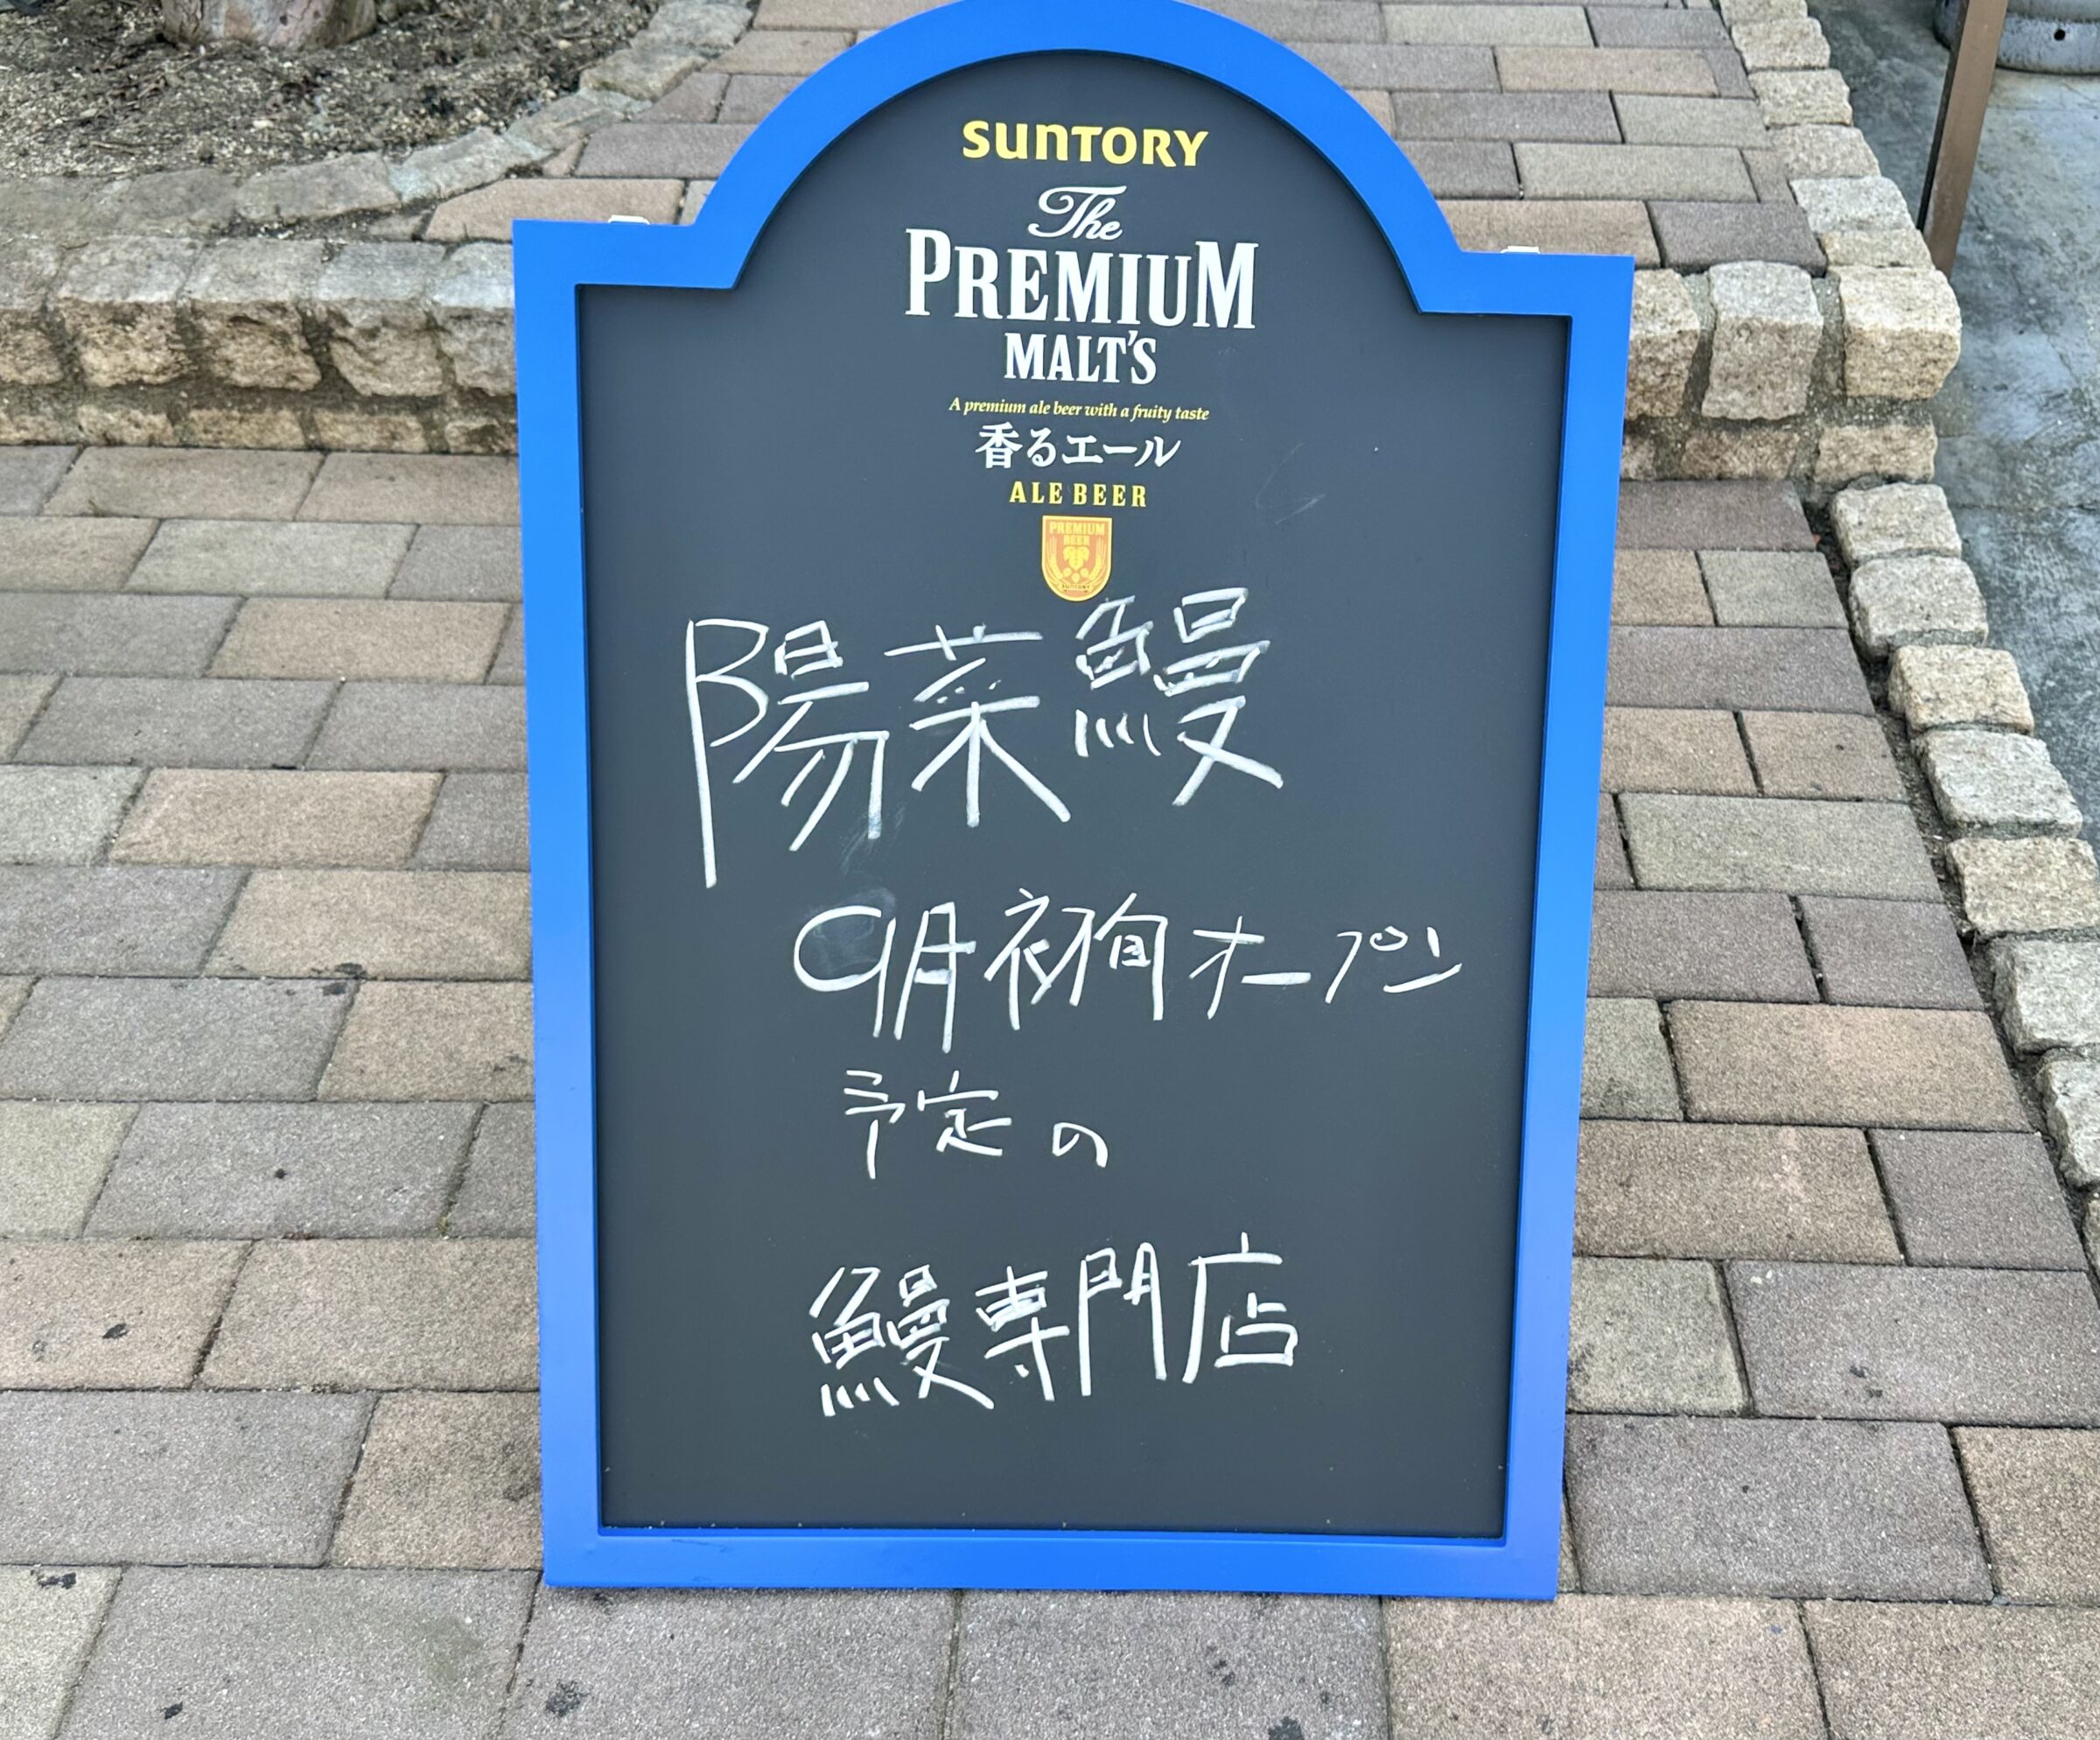 SUNTORY
The
PREMIUM
MALT'S
A premium ale beer with a fruity taste
香るエール
ALE BEER
PREMIUM
BEER
陽菜鰻
9月初旬オープン
予定の
鰻専門店